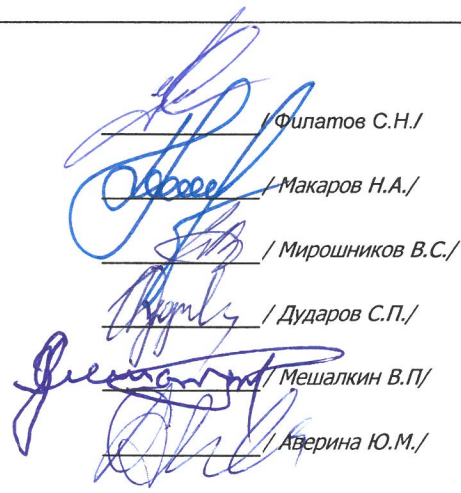 / Филатов С.Н./
/ Макаров Н.А./
/ Мирошников В.С./
/ Дударов С.П./
/ Мешалкин В.П/
/ Аверина Ю.М./